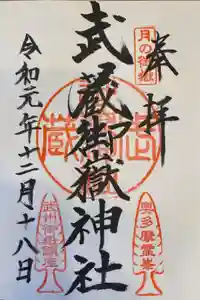 奉拝
月の御嶽
武蔵御嶽神社
奥多摩霊峯
武州御嶽
令和元年十二月十八日